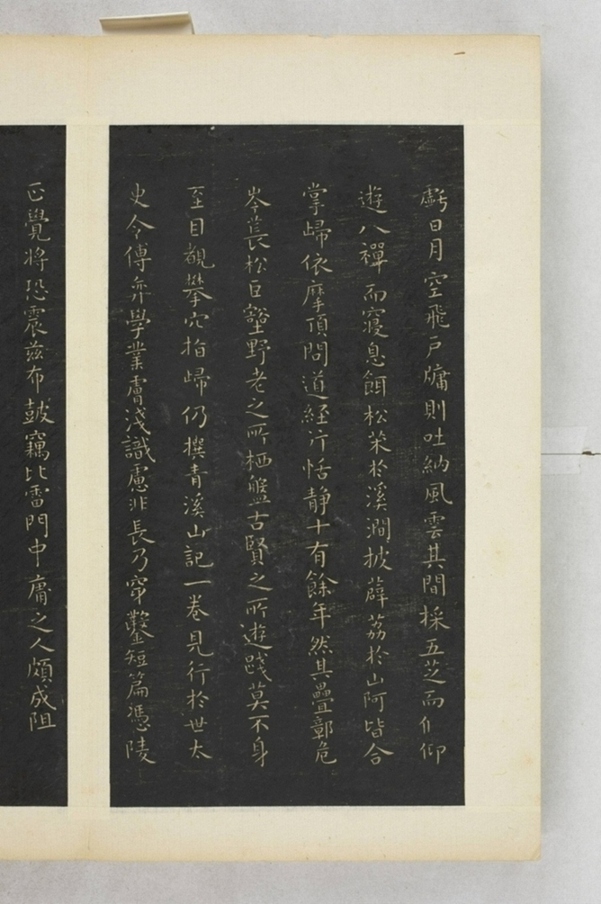 虧日月空飛戶牖則吐納風雲其間採五芝而俯仰
遊八禪而寢息餌松朮於溪澗披薜荔於山阿皆合
掌歸依摩頂問道經行恬靜十有餘年然其疊鄣危
岑長松巨壑野老之所栖盤古賢之所遊踐莫不身
至目覩攀穴指歸仍撰青溪山記一卷見行於世太
史令傅弈學業膚淺識慮非長乃穿鑿短篇憑陵
正覺將恐震茲布皷竊比雷門中庸之人頗成阻